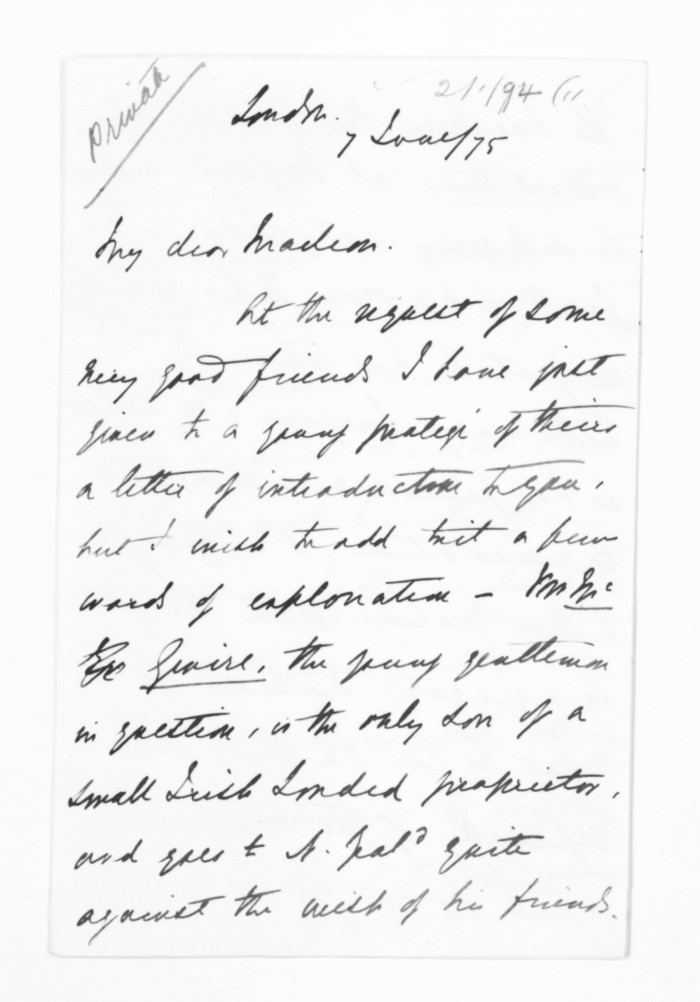 private
21/1/94 (11
London.
7 June/75
My dear Maclean.
At the request of some
very good friends I have just
given to a young protegé of theirs
a letter of introduction to you,
but I wish to add to it a few
words of explanation – Mr Mc
Gwire, the young gentleman
in question, is the only son of a
small Irish Landed proprietor,
and goes to N. Zeald quite
against the wish of his friends.